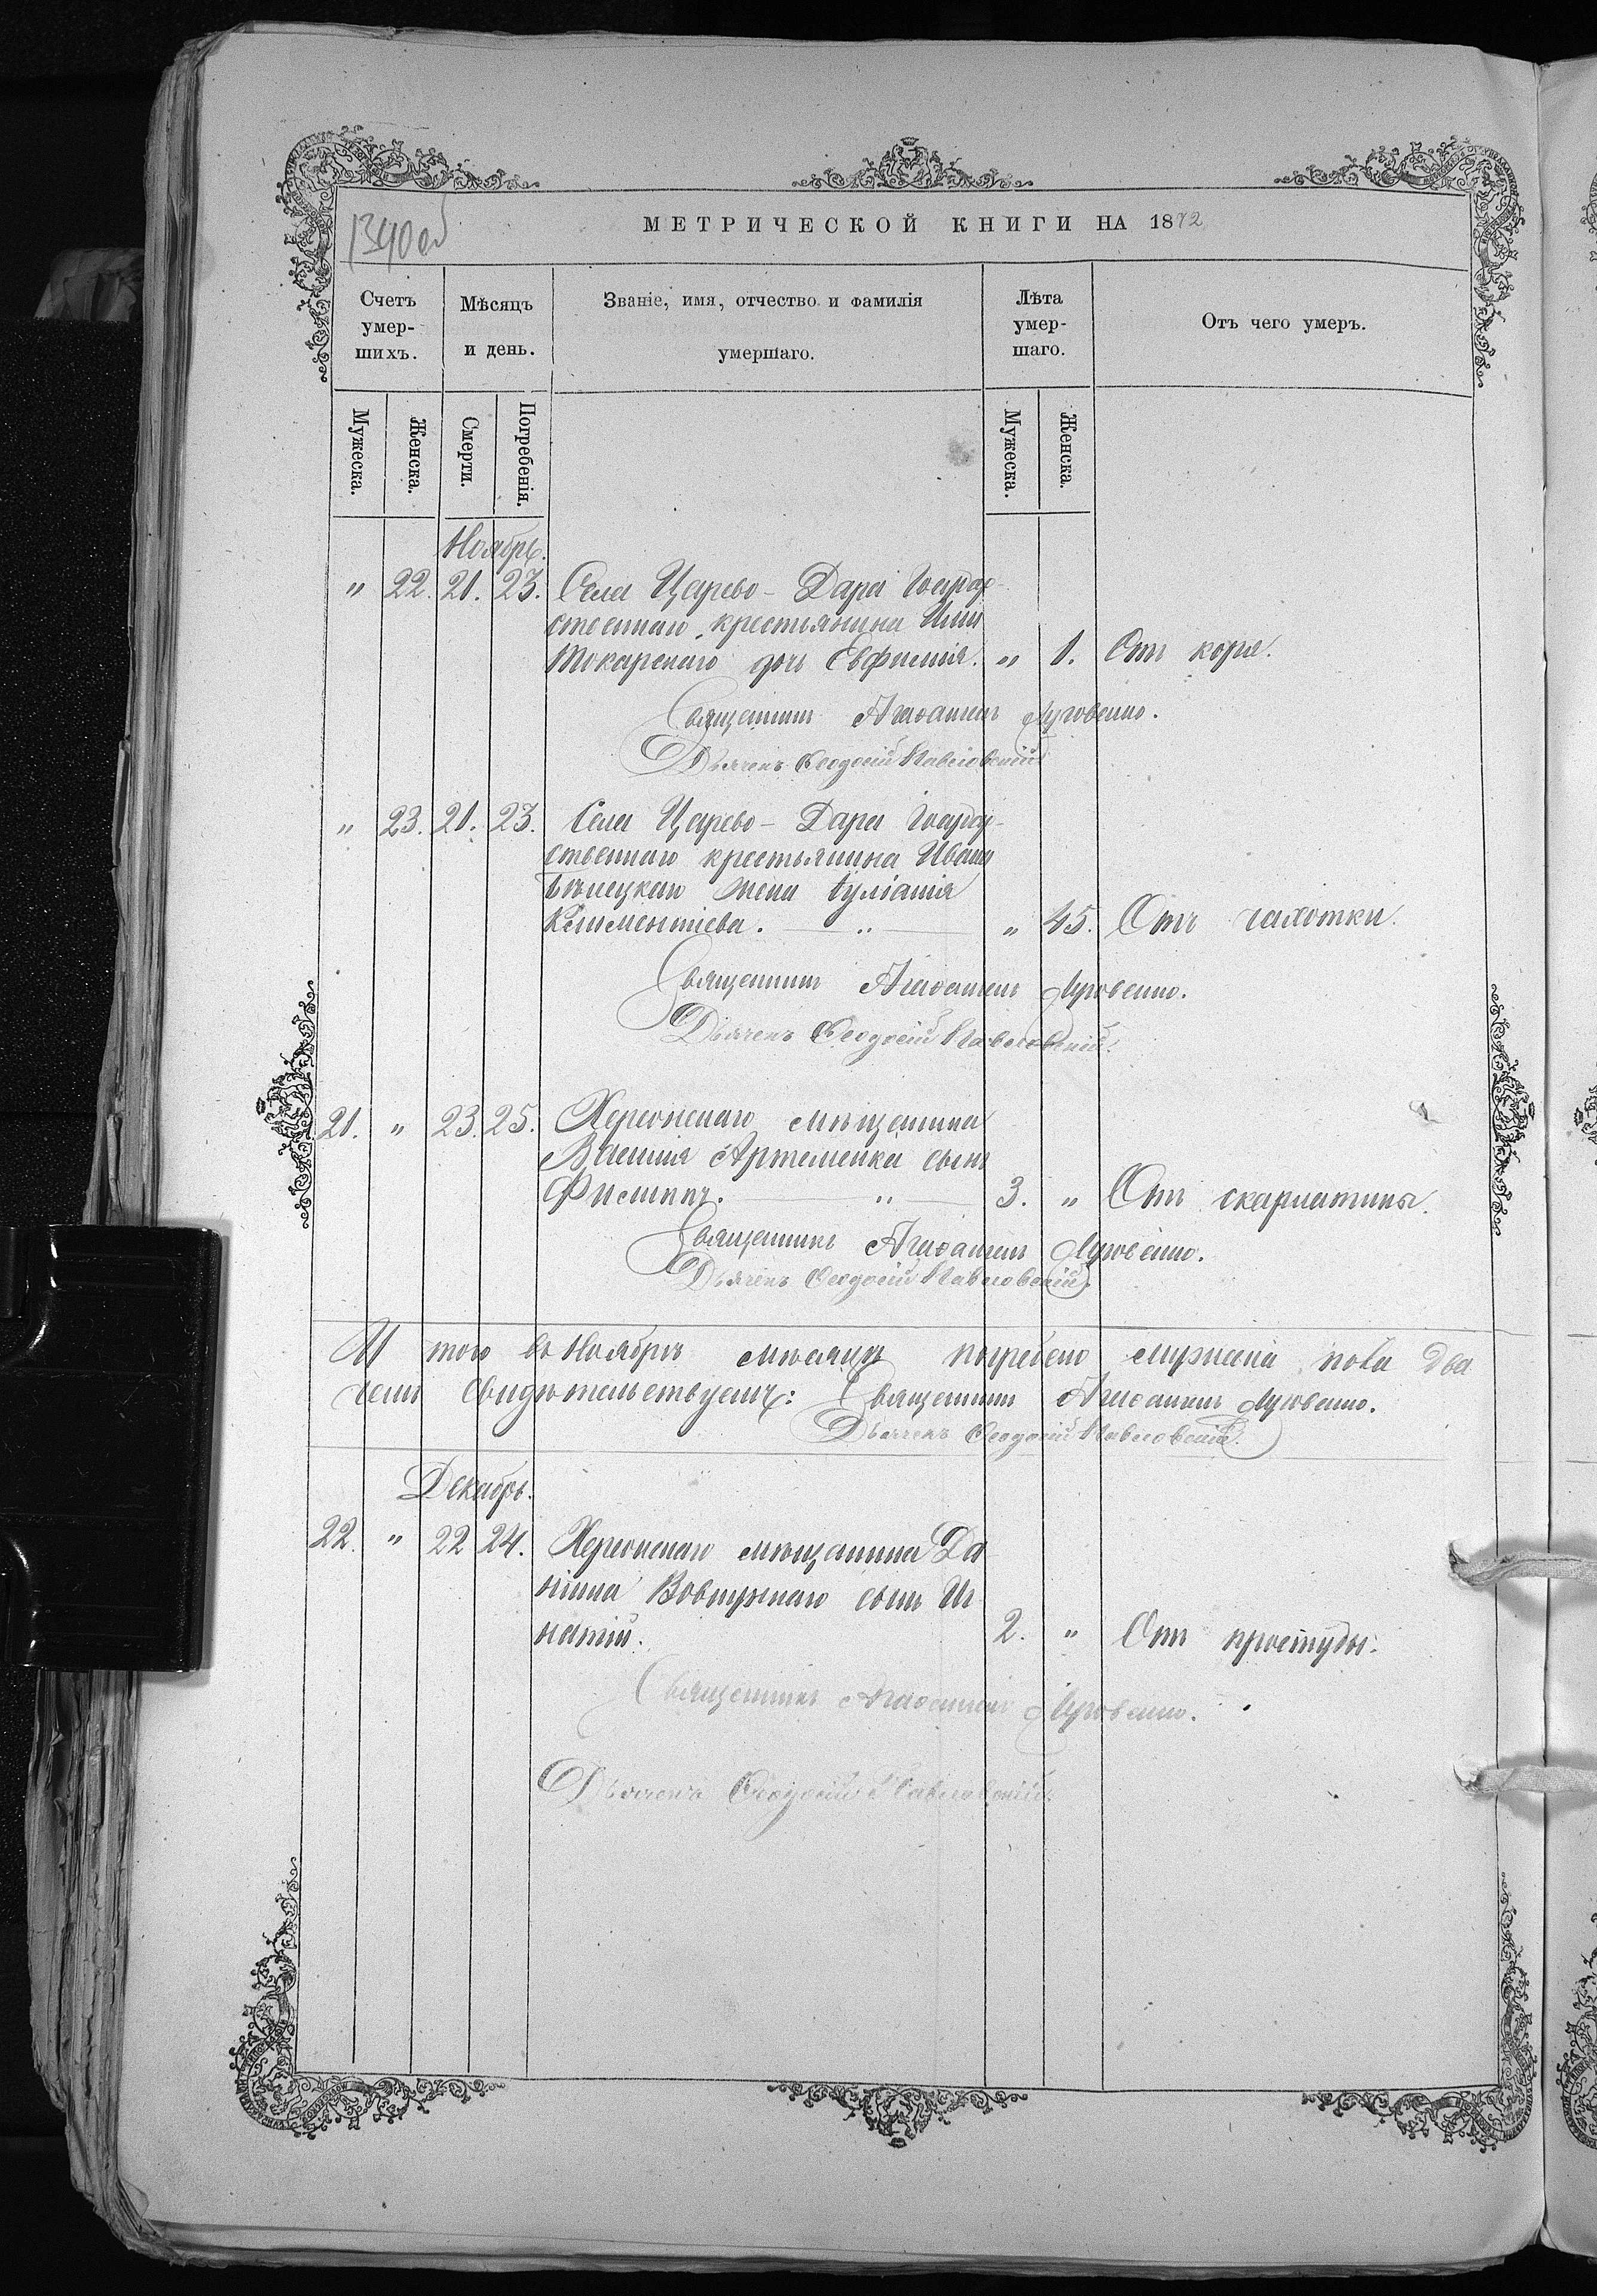 1340 об
МЕТРИЧЕСКОЙ КНИГИ НА 1872
Счетъ умер-шихъ.
Мѣсяцъ и день.
Званіе, имя, отчество и фамилія умершаго.
Лѣта умер-шаго.
Отъ чего умеръ.
Мужеска.
Женска.
Смерти.
Погребенія.
Мужеска.
Женска.
Ноябрь.
" 22. 21. 23. Села Царево-Дара Государ-
ственнаго крестьянина Иліи
Токарскаго дочь Евфимія. " 1. Отъ кори.
Священникъ Луговенко.
Дьячекъ Ѳеодосій Павловскій
" 23. 21. 23. Села Царево-Дара Государ-
ственнаго крестьянина Ивана
жена Іуліанія
Климентіева. " 45. Отъ чахотки.
Священникъ Луговенко.
Дьячекъ Ѳеодосій Павловскій.
21. " 23. 25. Херсонскаго мѣщанина
Василія Артеменка сынъ
Филиппъ. " 3. " Отъ скарлатины.
Священникъ Луговенко.
Дьячекъ Ѳеодосій Павловскій.
И того въ Ноябрѣ мѣсяцѣ погребено мужеска пола два
чемъ свидѣтельствуемъ: Священникъ Луговенко.
Дьячекъ Ѳеодосій Павловскій.
Декабрь.
22. " 22 24. Херсонскаго мѣщанина Да
ніила сынъ Иг
натій. 2. " Отъ простуды.
Священникъ Луговенко.
Дьячекъ Ѳеодосій Павловскій.